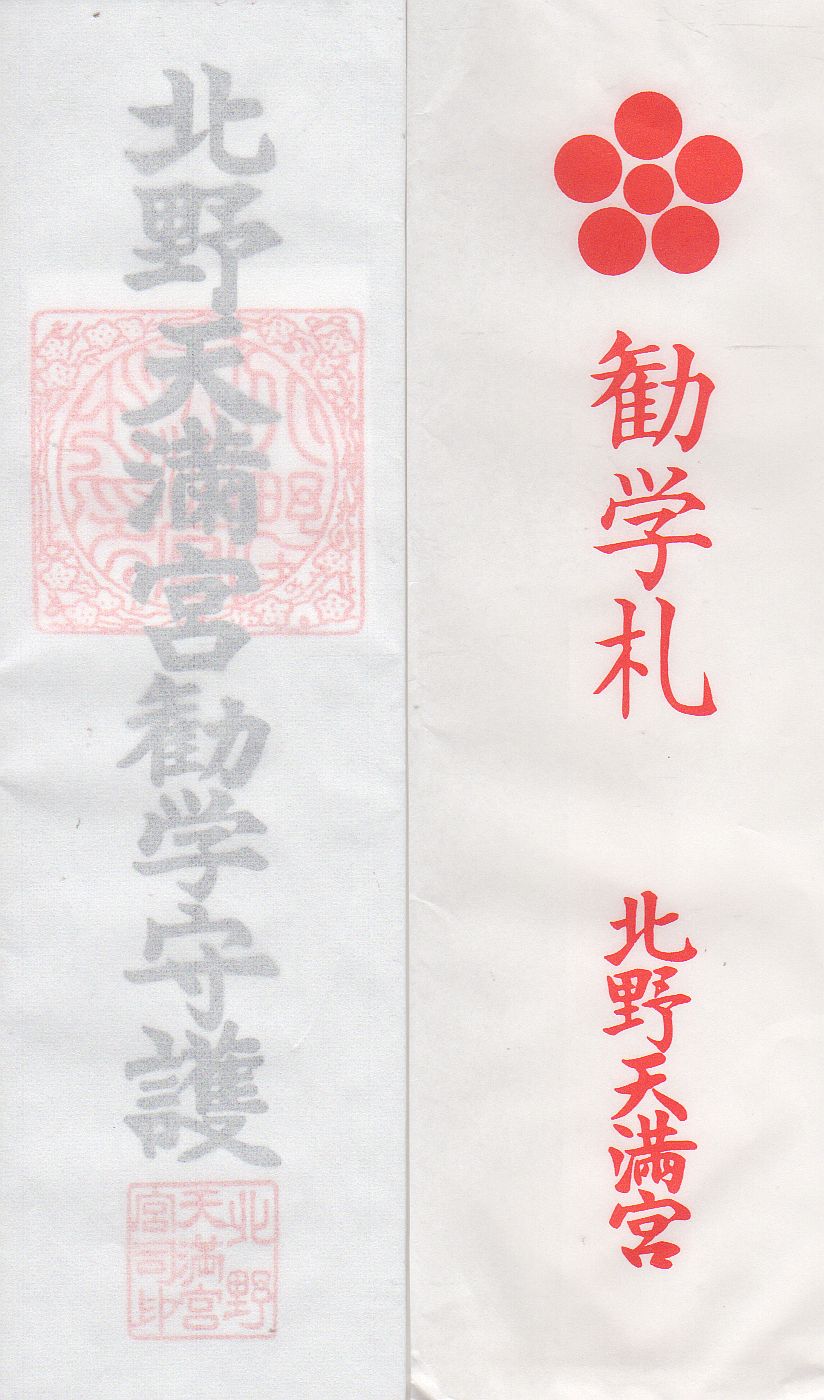 北野天満宮勧学守護
北野
天満宮
宮司印
勧学札
北野天満宮